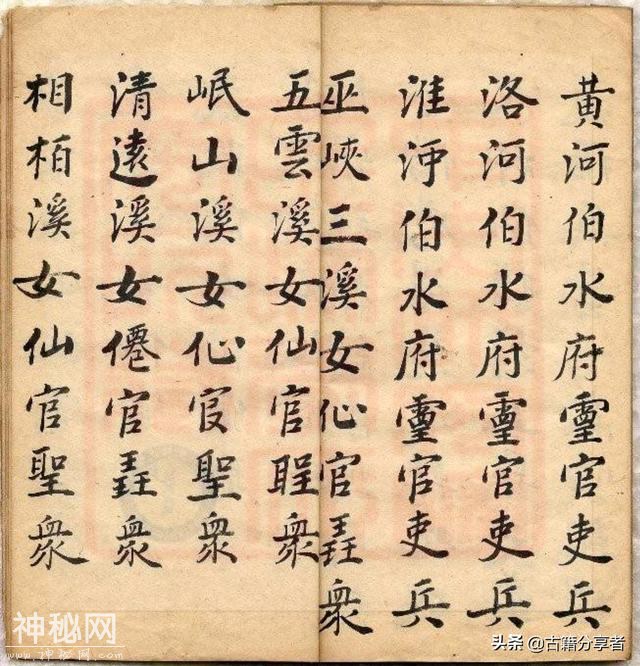 黃河伯水府靈官吏兵
洛河伯水府靈官吏兵
淮河伯水府靈官吏兵
巫峽三溪女仙官聖衆
五雲溪女仙官聖衆
岷山溪女仙官聖衆
清遠溪女僊官聖衆
相栢溪女仙官聖衆
神秘网
头条 @古籍分享者